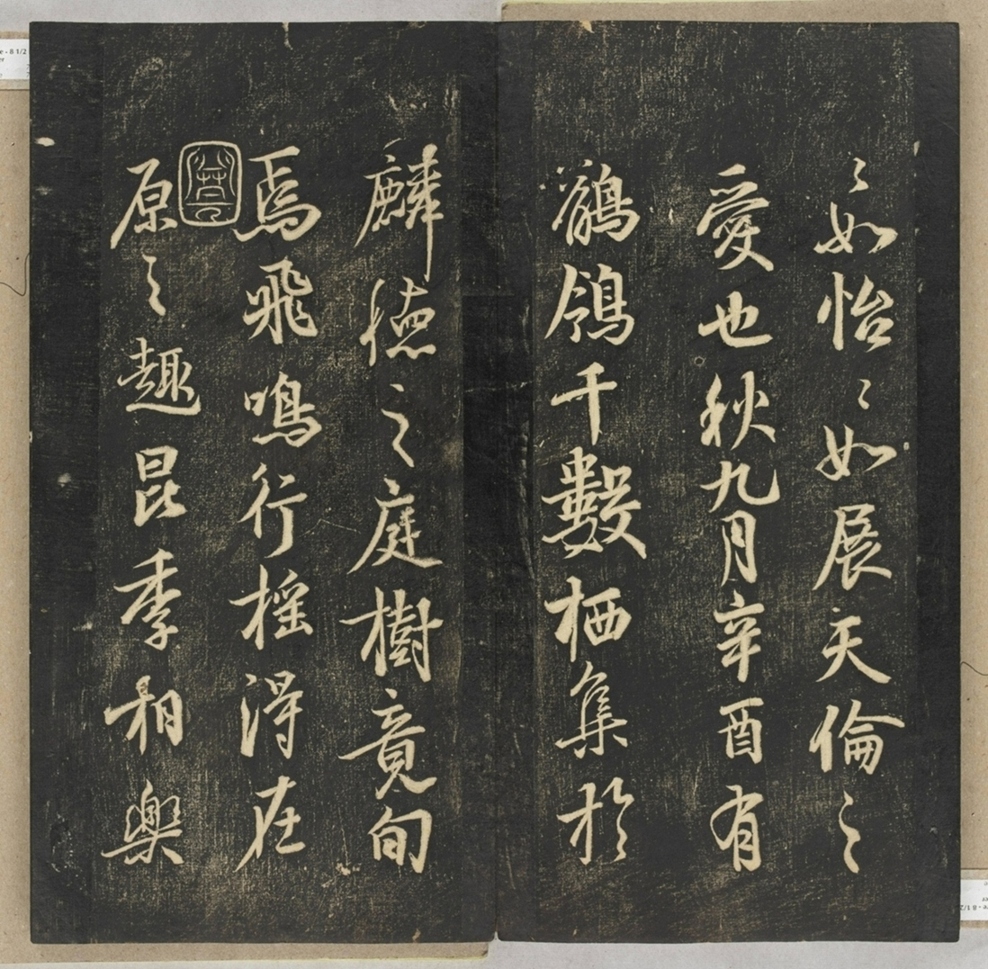 〻如怡〻如展天倫之
愛也秋九月辛酉有
鶺鴒千數栖集於
麟德之庭樹竟旬
焉飛鳴行搖得在
原之趣昆季相樂